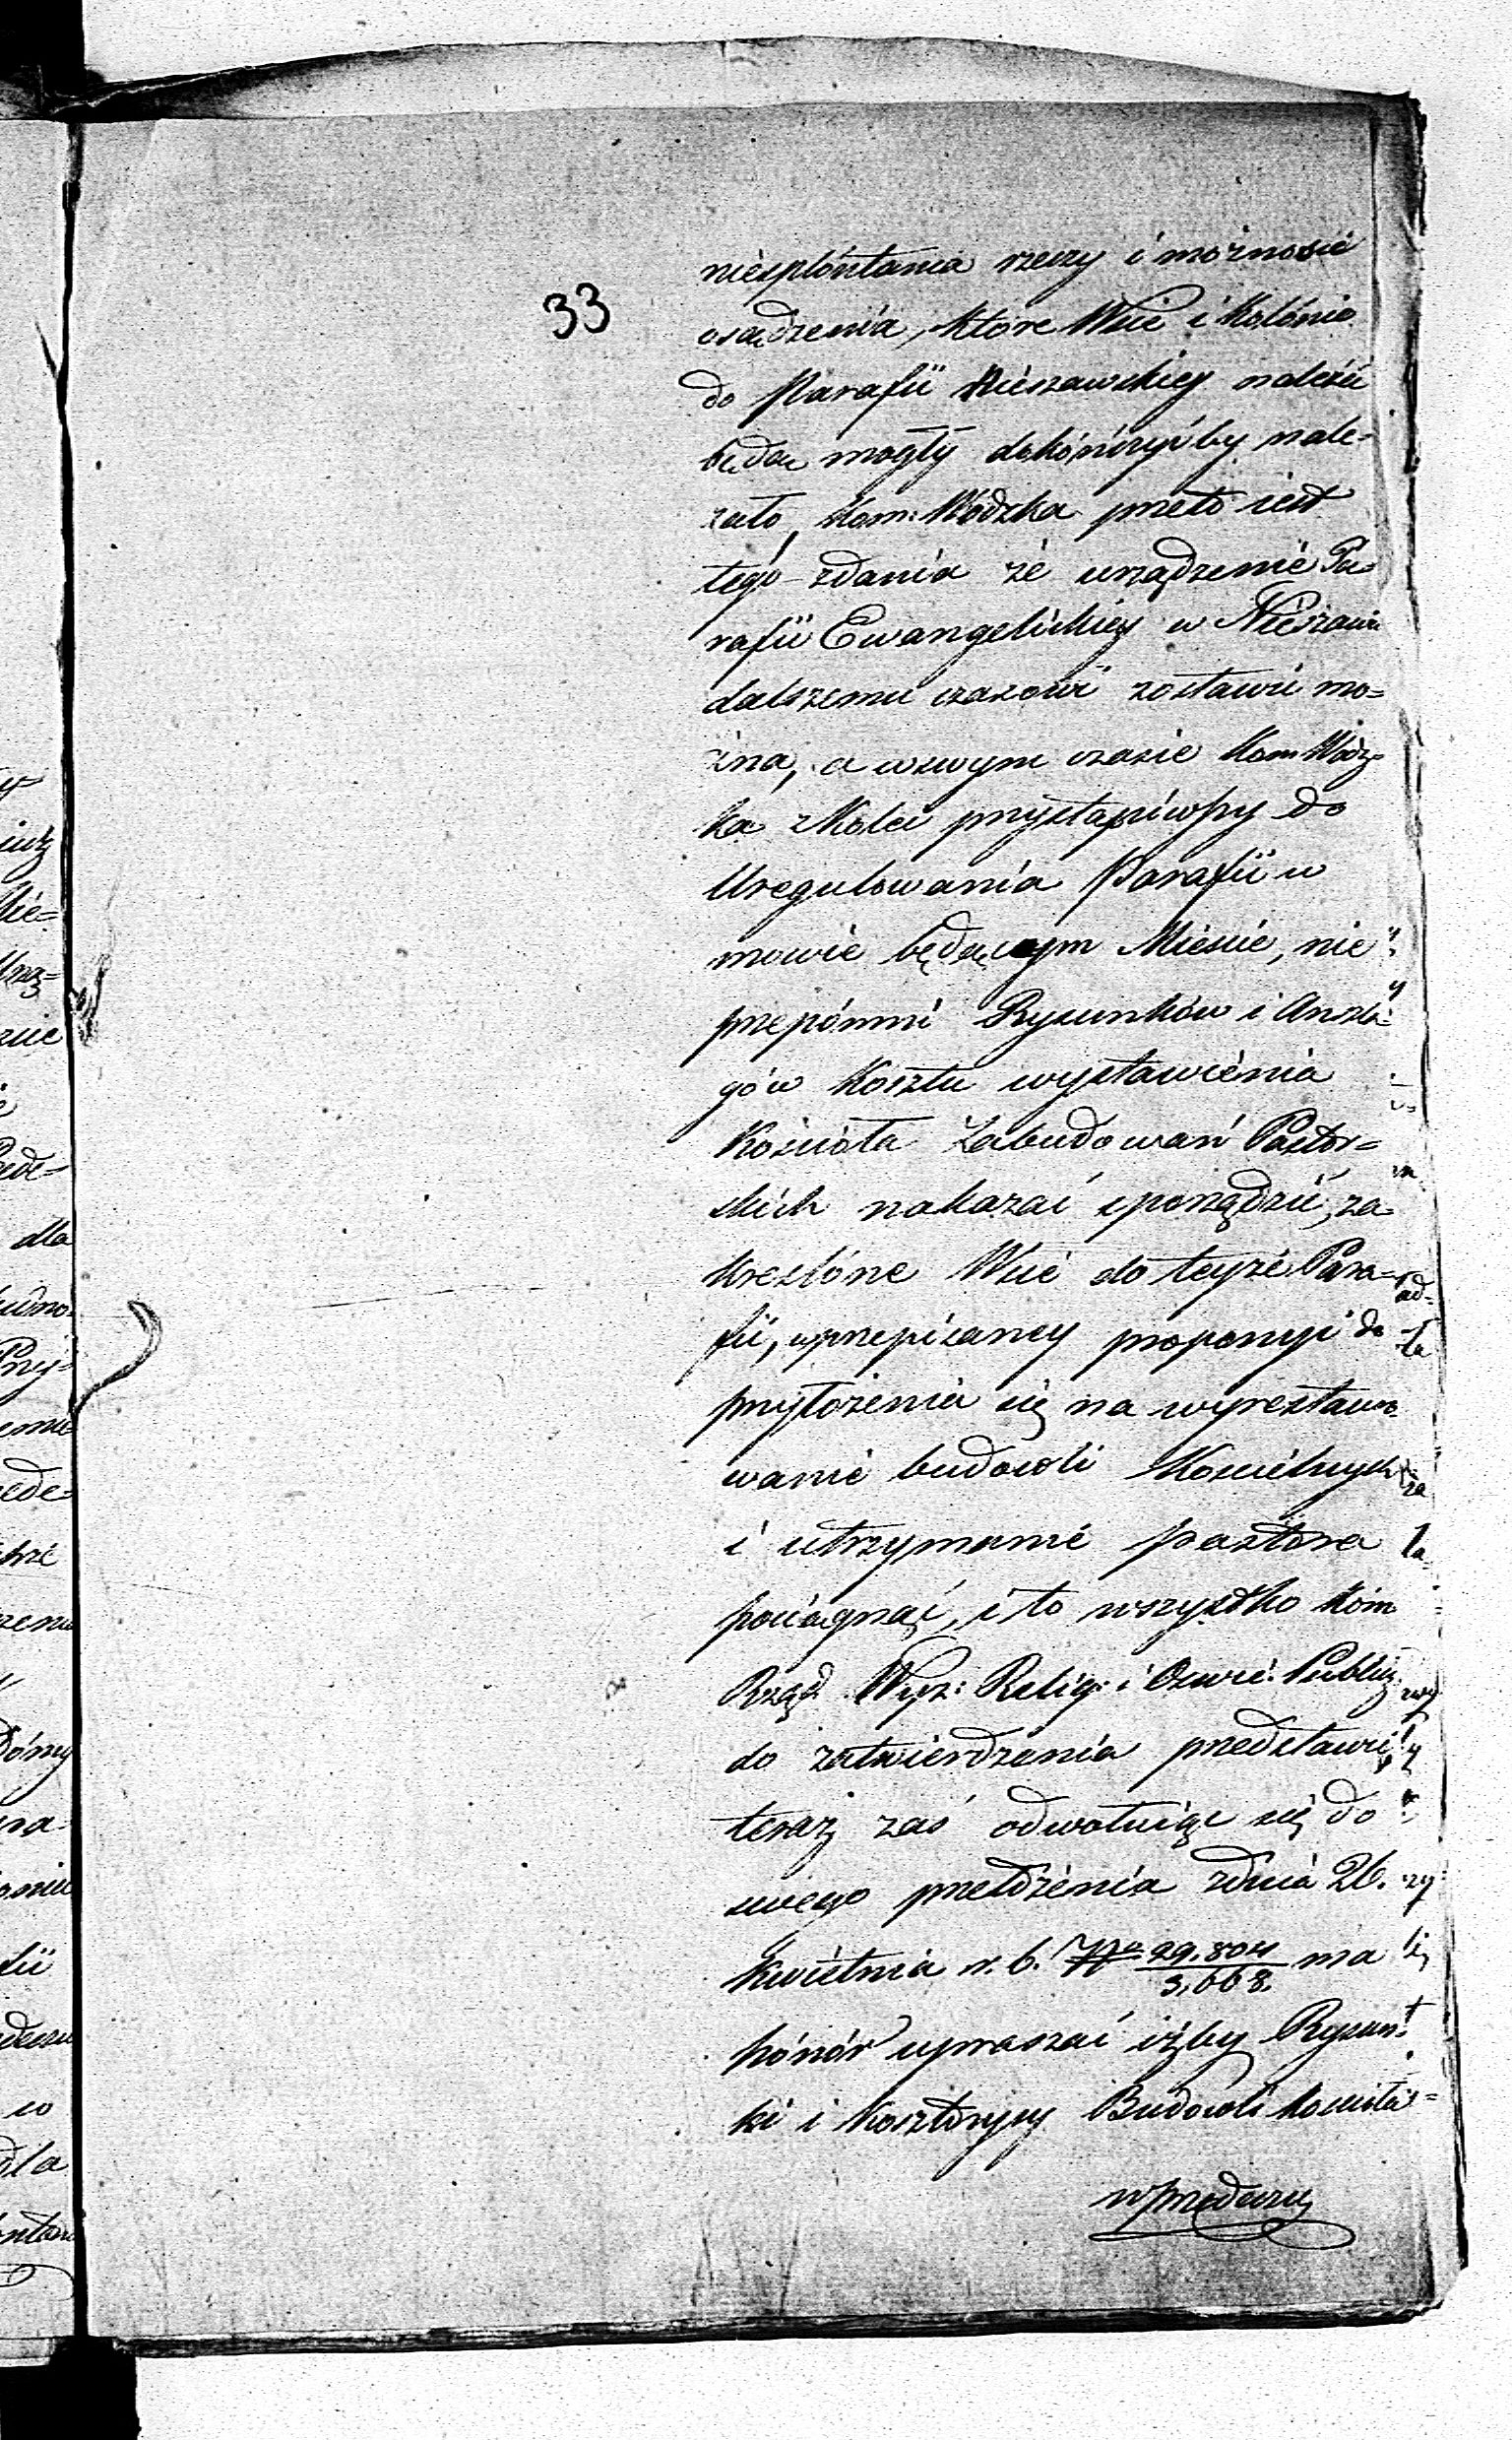 33
niesplóntania rzeczy i możności
osądzenia, które Wsie i Kolónie
do Parafii Nieszawskiey należeć
będą mogły dokónczyć by nale=
żało, Kom: Wódzka przeto iest
tego zdania że urządzenie Pa=
rafii Ewangelickiey w Nieszawie
dalszemu czasowi zostawić mo=
żna, a wswym czasie Kom Wódz=
ka z Kolei przystąpiwszy do
Uregulowania Parafii w
mowie będącym Mieście, nie
przepómni Rysunków i Anszla=
gów Kosztu wystawienia
Kościoła Zabudowań Pastor=
skich nakazać sporządzić, za=
kreślóne Wsie do teyże Para=
fii, w przepisaney proporcyi do
przyłożenia się na wyrestauro=
wanie budowli Kościelnych
i utrzymanie pastora
pociągnąć, i to wszystko Kóm
Rząd. Wyz: Relig: i Oswie: Public
do zatwierdzenia przedstawić,
teraz zaś odwołuiąc się do
swego przełożenia zdnia 26.
Kwietnia r. b. No 29.804/3,668. ma
hónór upraszać iżby Rysun=
ki i Kosztorysy Budowli Kościoła=
w Przedeczu